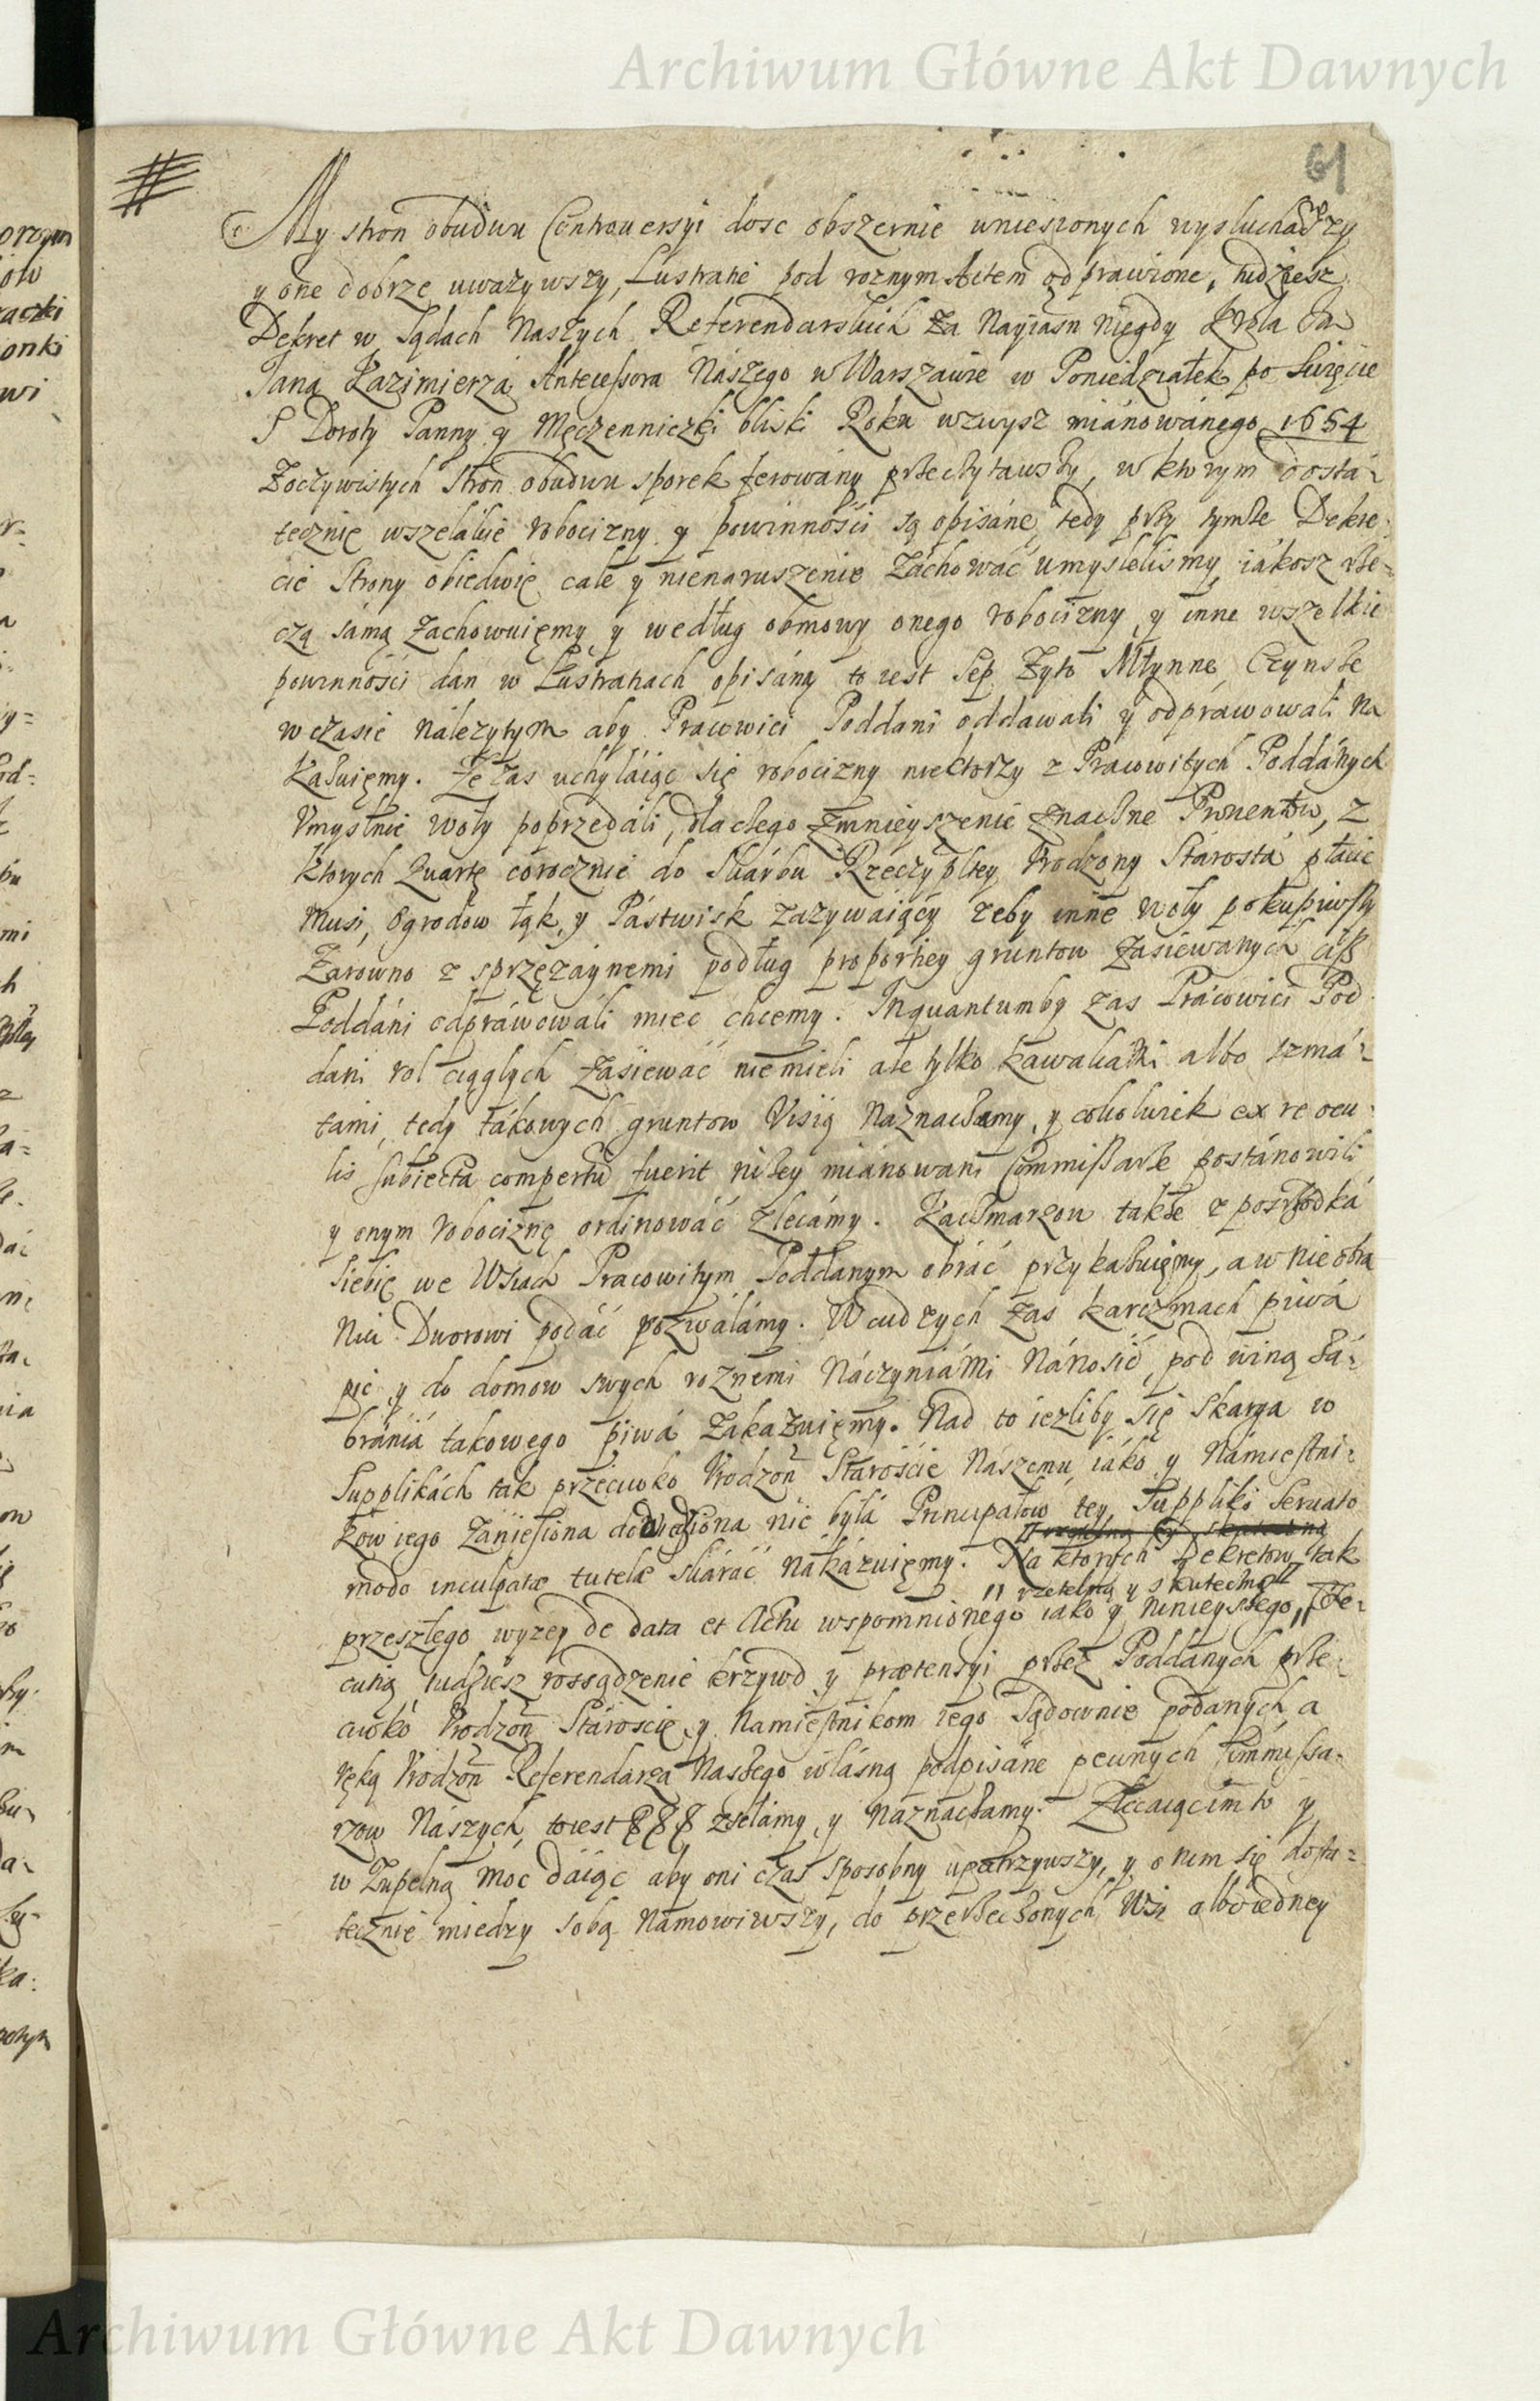 Archiwum Główne Akt Dawnych
61
My stron obudwu Controuersyi dosc obszernie wniesionych wysłuchawszy
y one dobrze uwazywszy, Lustratie pod roznym Actem odprawione, tudziesz
Dekret w Sądach Naszych Referendarskich za Nayiasn niegdy Krola Ja
Jana Kazimierza Antecessora Naszego w Warszawie w Poniedziałek po Swięcie
S Doroty Panny y Męczenniczki bliski Roku wzwysz miánowánego 1654
Zoczywistych stron obudwu sporek ferowány przeczytawszy, w ktorym dostá-
tecznie wszelakie robocizny y powinnosci są opisáne, tedy przy tymze Dekre-
cie Strony obiedwie cale y nienaruszenie záchowáć umyslelismy, iákosz rze-
czą sámą zachowuięmy y według obmowy onego robocizny, y inne wszelkie
powinnośći dan w Lustratiach opisáną to iest Sep Zyto Młynne, Czynsze
w czasie nálezytym aby Pracowici Poddani oddawali y odpráwowali Na
kazuięmy. Ze zas uchyláiąc się robocizny niektorzy z Pracowitych Poddánych
Vmyslnie woły poprzedáli, dla czego zmnieyszenie znaczne Prouentow, z
ktorych kwartę corocznie do Skárbu Rzeczypltey Vrodzony Stárostá płácic
musi, Ogrodow łąk, y Pástwisk zazywaiący zeby inne woły pokupiwszy
Zarowno z sprzęzaynemi podług proportiey gruntow zasiewanych ciż
Poddáni odpráwowáli miec chcemy. Inquantumby zas Prácowici Pod
dani rol ciągłych zásiewáć niemieli ale tylko kawałkámi albo szmá-
tami, tedy tákowych gruntow Visią Naznaczamy, y cokolwiek ex re ocu-
lis subiecta compertū fuerit nizey mianowani Commissarze postánowili
y onym robociznę ordinowáć zlecámy. Kaczmarzow takze z posrzodká
siebie we Wsiach Pracowitym Poddanym obráć przykazuięmy, a w nieobra
niu Dworowi podáć pozwálámy. W cudzych zas karczmach piwá
pić y do domow swych roznemi Náczyniámi Nánosić, pod winą zá-
bránia takowego piwá zakazuięmy. Nad to iezliby się Skarga w
Supplikách tak przeciwko Vrodzon Starośćie Nászemu iáko y Námiestni-
kow iego zaniesiona dowiedziona nie byłá Principałow tey Suppliki Seruato
modo inculpatæ tutelæ skáráć nakázuięmy. Na ktorych Dekretow tak
// rzetelną y skuteczną //
przeszłego wyzey de data et Actu wspomnionego iako y ninieyszego, // Exe-
cutią tudziesz rossądzenie krzywd y prætensyi przez Poddanych prze-
ciwko Vrodzon Stárośćie y Namiestnikom iego Sądownie podanych a
ręką Vrodzon Referendarza Naszego włásną podpisáne pewnych Commissa-
rzow Nászych, to iest &&& zsełámy, y náznaczamy. Zlecaiąc im to y
w Zupełną moc dáiąc aby oni czas sposobny upatrzywszy, y o nim się dosta-
tecznie miedzy sobą Namowiwszy, do przerzeczonych Wsi albo iedney
Archiwum Główne Akt Dawnych